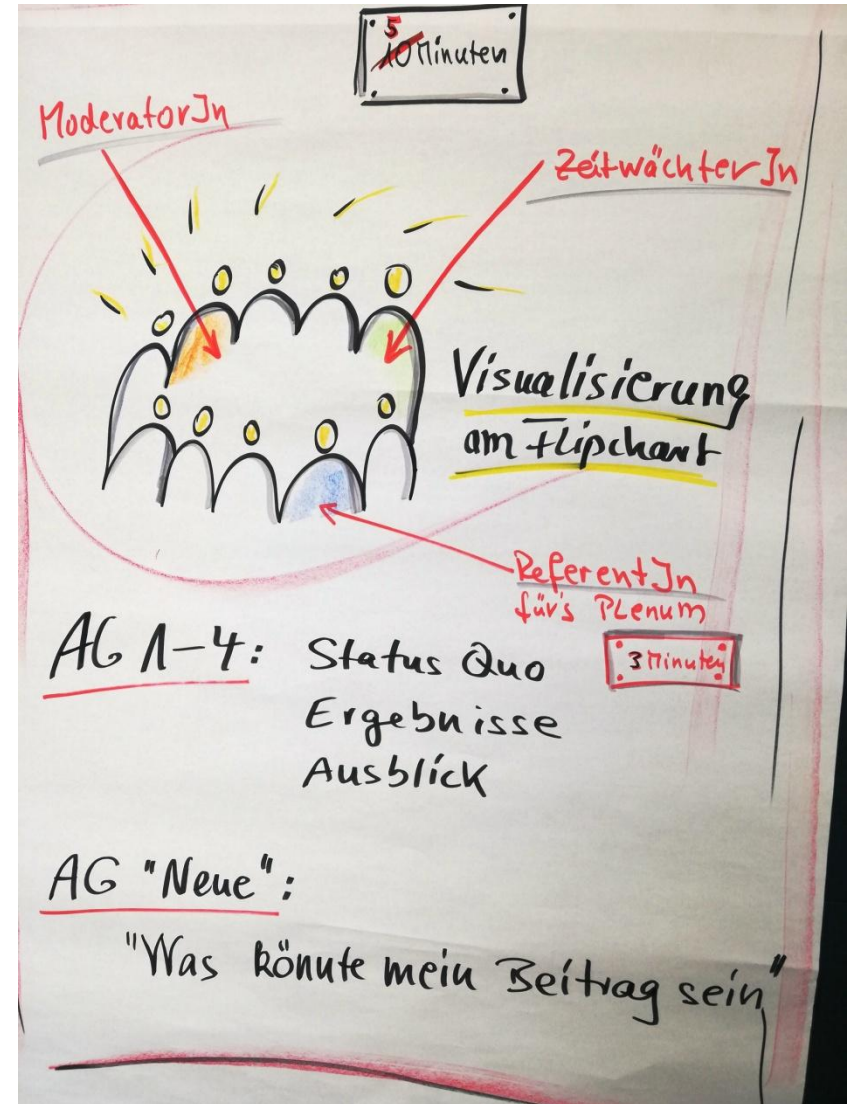 5
10 Minuten
ModeratorIn
ZeitwächterIn
Visualisierung
am Flipchart
ReferentIn
für's Plenum
AG 1-4: Status Quo
3 Minuten
Ergebnisse
Ausblick
AG "Neue":
"Was könnte mein Beitrag sein"